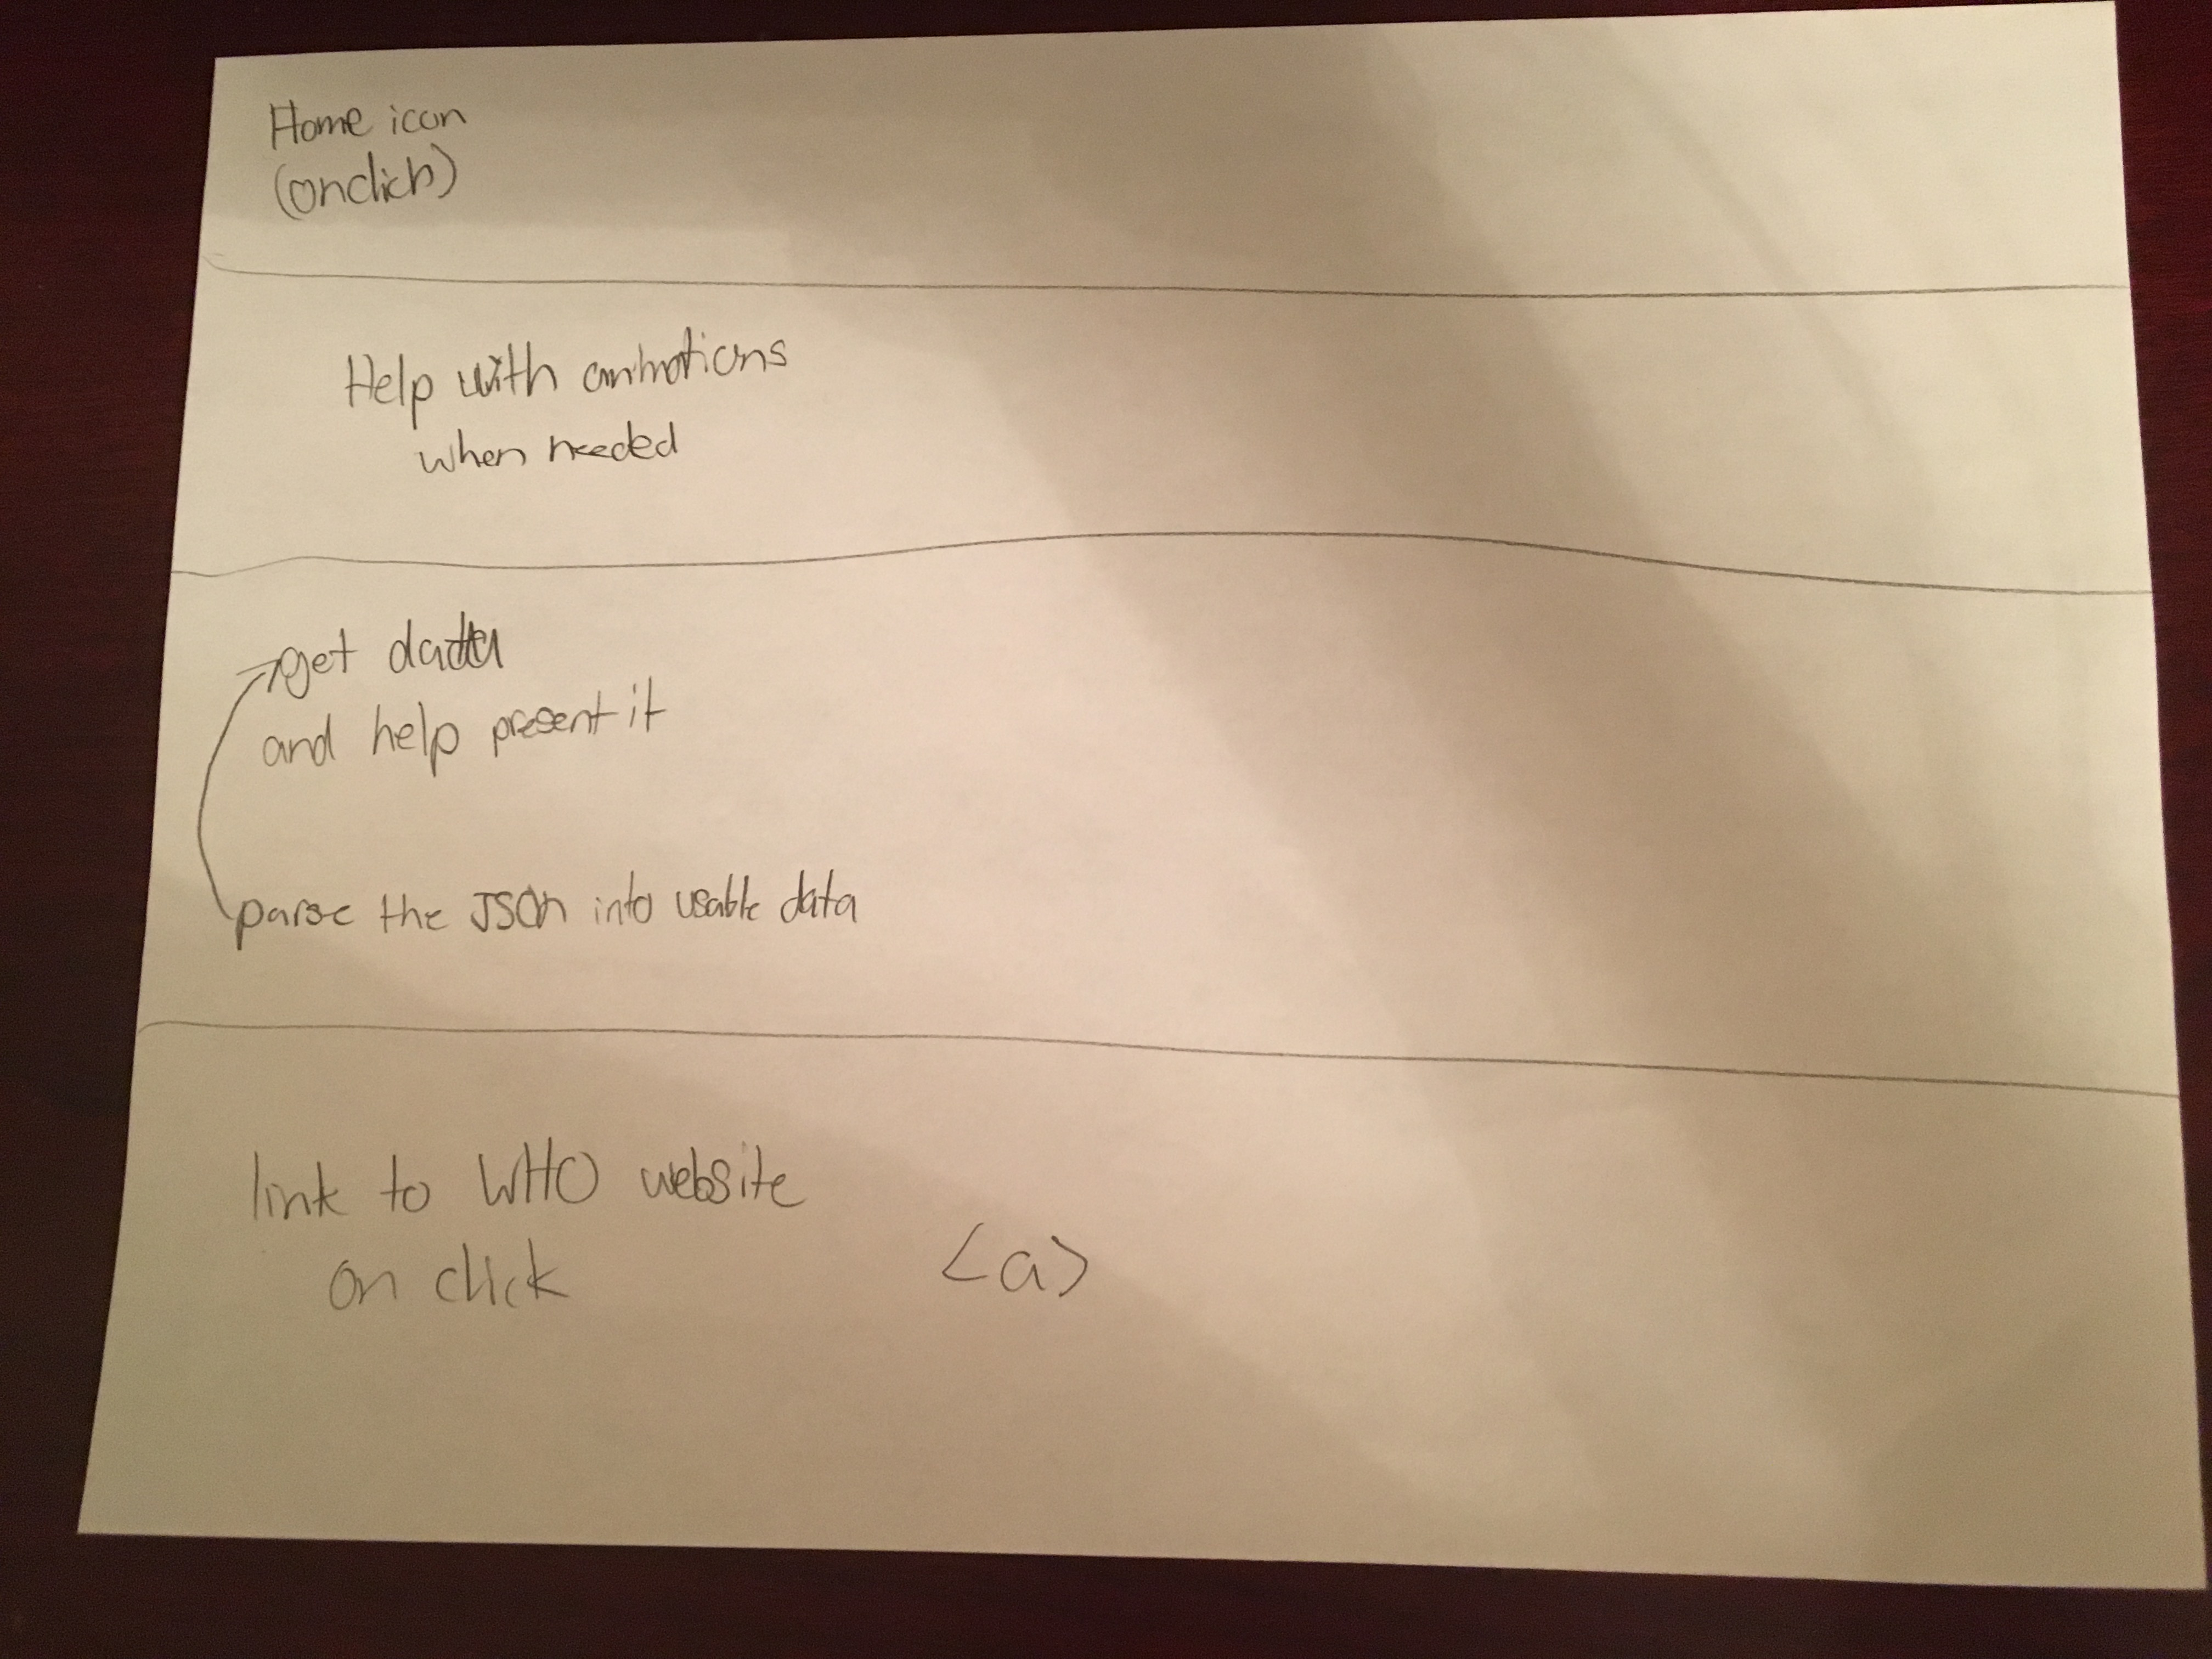 Home icon
(onclick)
Help with animations
when needed
get data
and help present it
parse the JSON into usable data
link to WHO website
on click <a>